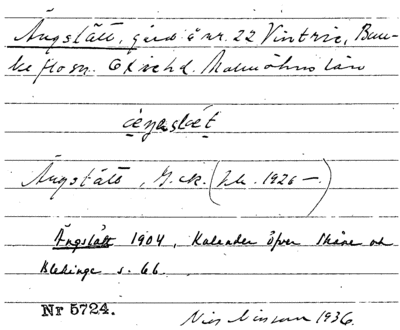 Ängslätt, gård å nr. 22 Vintrie, Bun-
keflo sn. Oxie hd. Malmöhus län
Ängslätt, G. ek. (Jb. 1926 —.)
Ängslätt 1904, Kalender öfver Skåne och
Blekinge s. 66.
Nr 5724.
Nils Nilsson 1936.